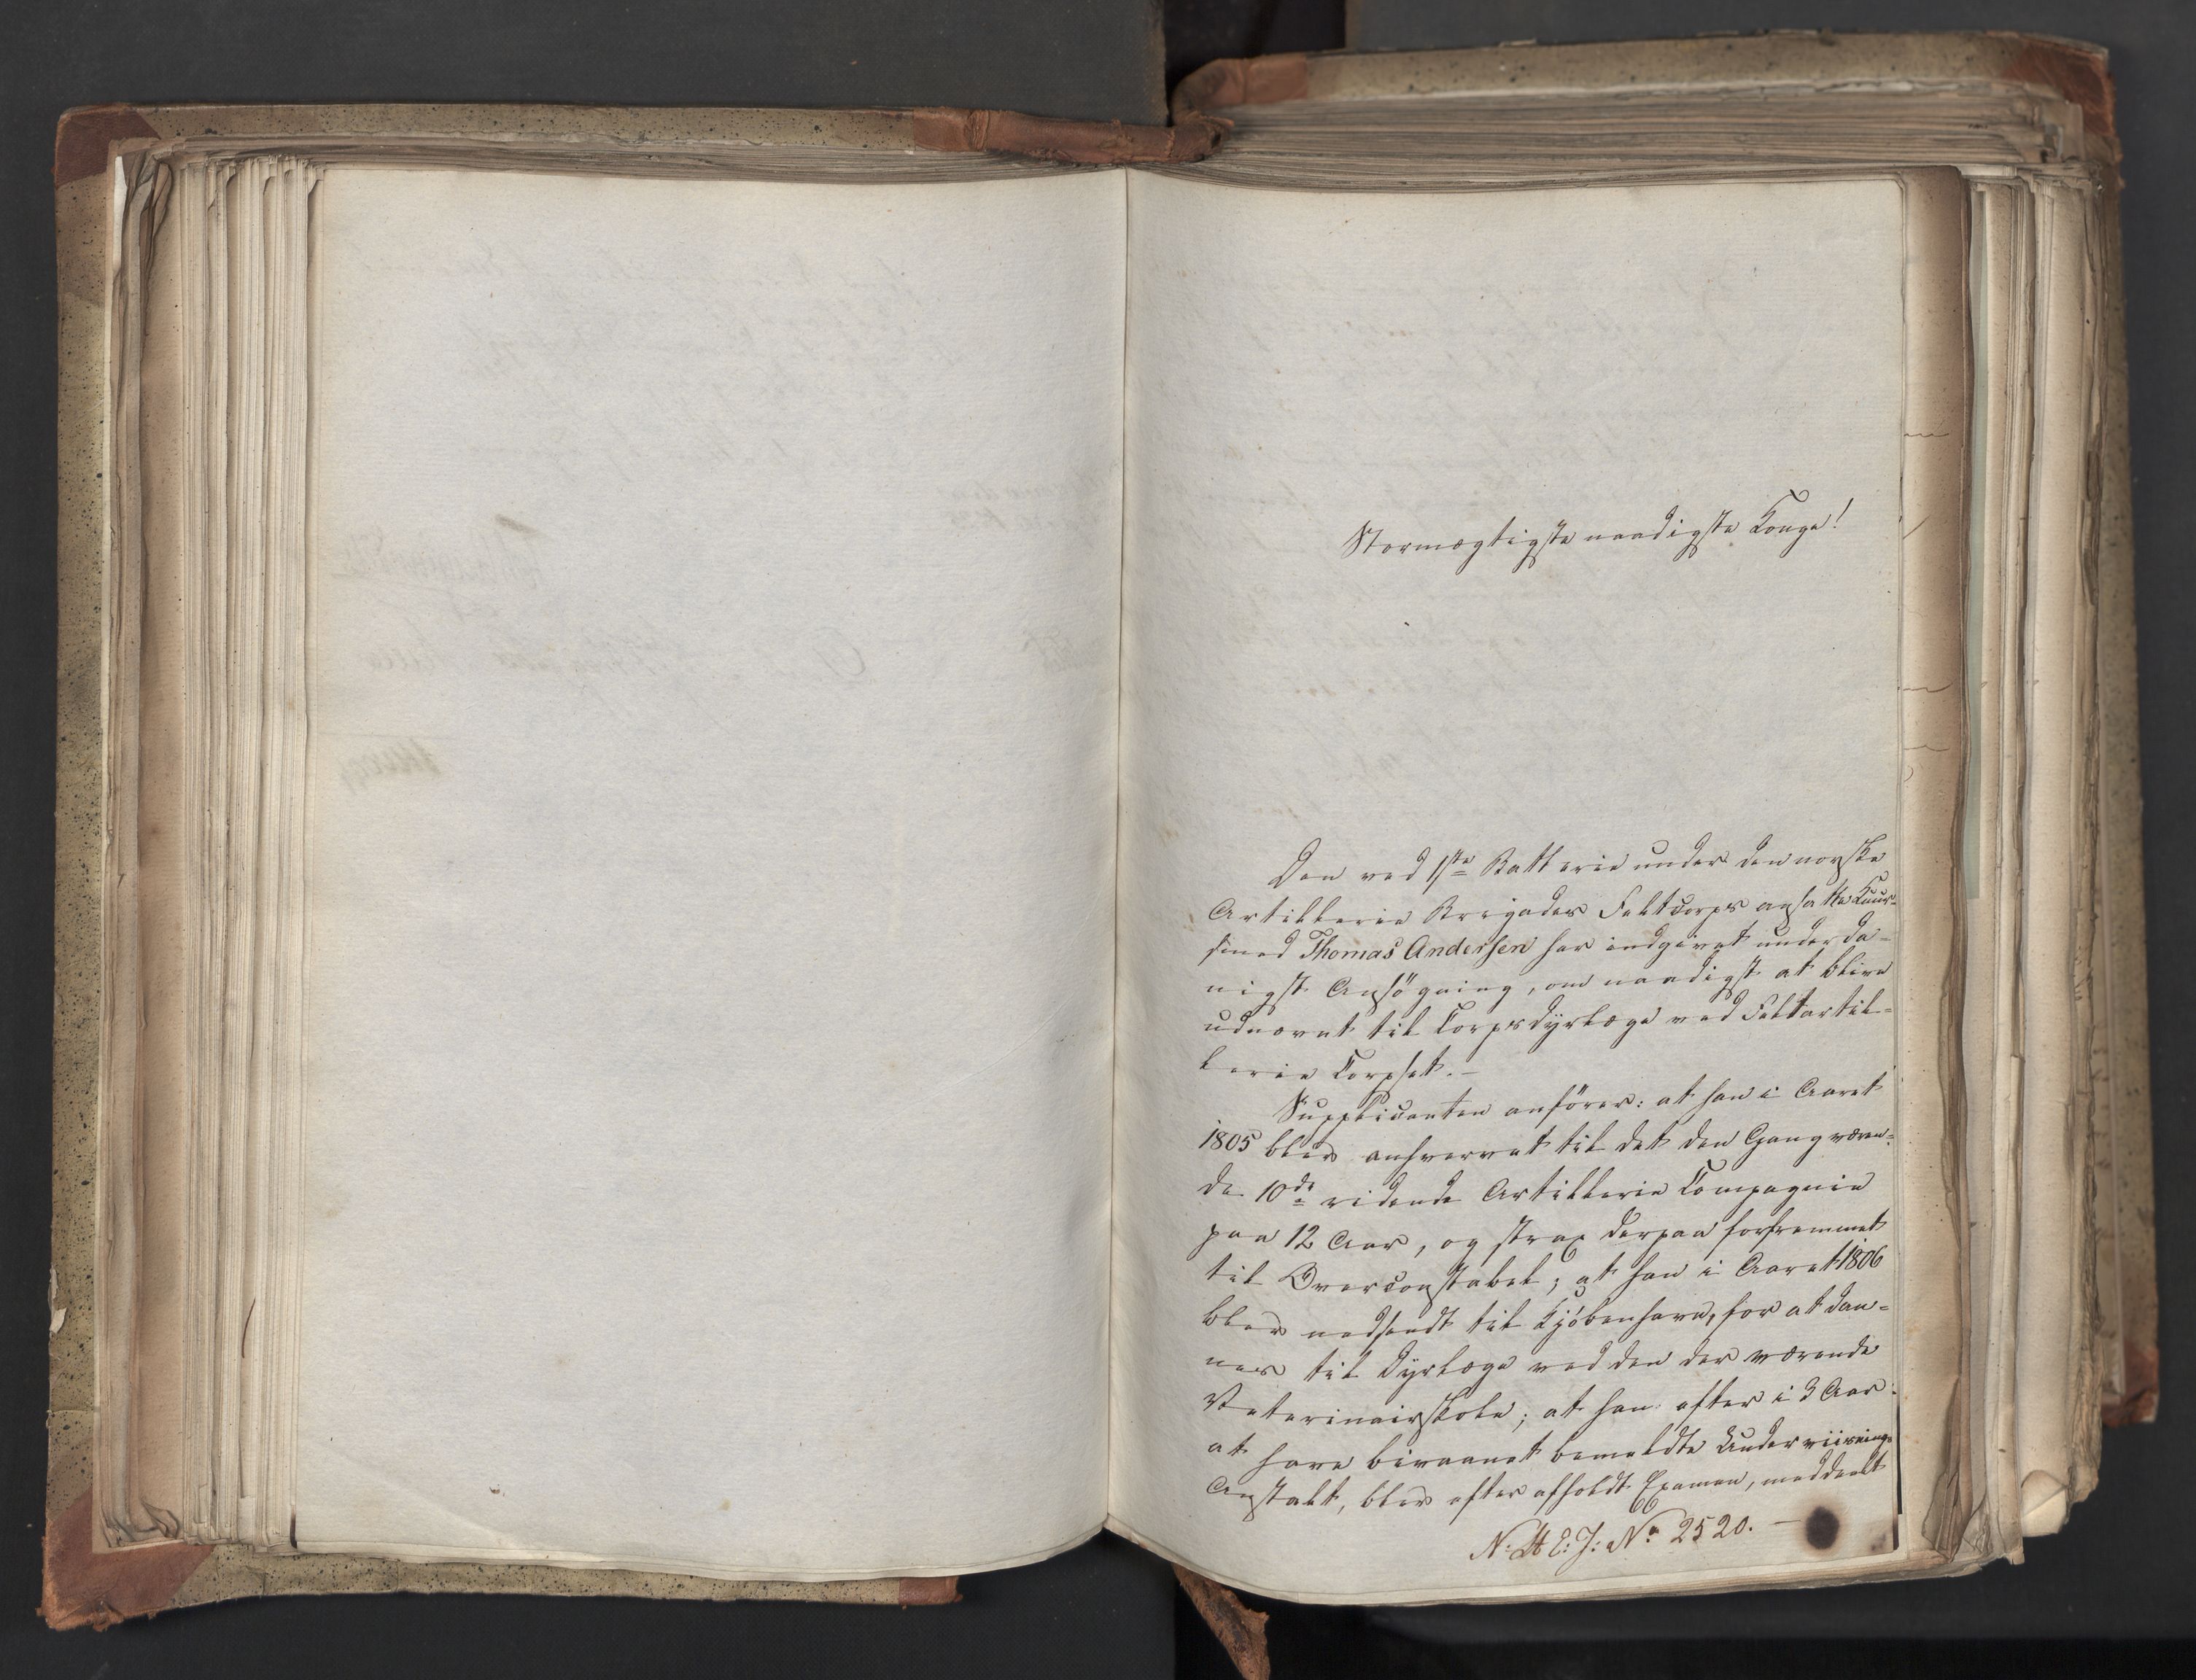 Stormægtigste naadigste Konge!
Den ved 1ste Batterie under den norske
Artillerie Brigades Feltcorps ansatte Kuur-
smed Thomas Andersen har indgivet underda-
nigst Ansøgning, om naadigst at blive
udnævnt til Corpsdyrlæge ved Feltartil-
lerie Corpset. –
Supplicanten anfører: at han i Aaret
1805 blev anhvervet til det den Gang væren-
de 10de ridende Artillerie Compagnie
paa 12 Aar, og strax derpaa forfremmet
til Overconstabel; at han i Aaret 1806
blev nedsendt til Kjøbenhavn, for at dan-
nes til Dyrlæge ved den der værende
Veterinairskole; at han efter i 3 Aar
at have bivaanet bemeldte Underviisnings
Anstalt, blev efter afholdt Examen, meddeelt
N: A E: J: No 2520. –